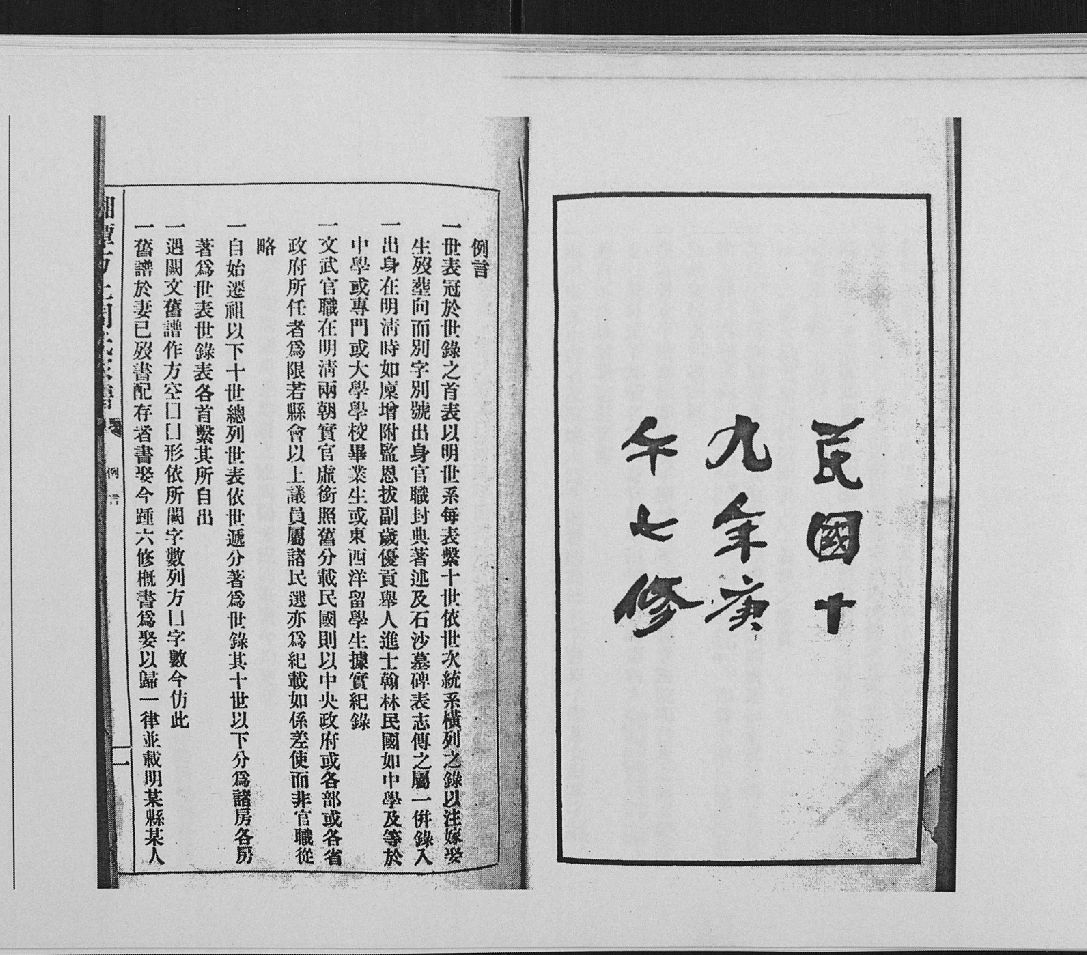 民國十
九年庚
午七修
例言
一世表冠於世錄之首表以明世系每表繫十世依世次統系橫列之錄以注嫁娶
生歿塟向而別字別號出身官職封典著述及石沙墓碑表志傳之屬一倂錄入
一出身在明淸時如廩增附監恩拔副歲優貢舉人進士翰林民國如中學及等於
中學或專門或大學學校畢業生或東西洋留學生據實紀錄
一文武官職在明淸兩朝實官虛銜照舊分載民國則以中央政府或各部或各省
政府所任者爲限若縣會以上議員屬諸民選亦爲紀載如係差使而非官職從
略
一自始遷祖以下十世總列世表依世遞分著爲世錄其十世以下分爲諸房各房
著爲世表世錄表各首繫其所自出
一遇闕文舊譜作方空囗囗形依所闕字數列方囗字數今仿此
一舊譜於妻已歿書配存者書娶今踵六修槪書爲娶以歸一律並載明某縣某人
例言
一